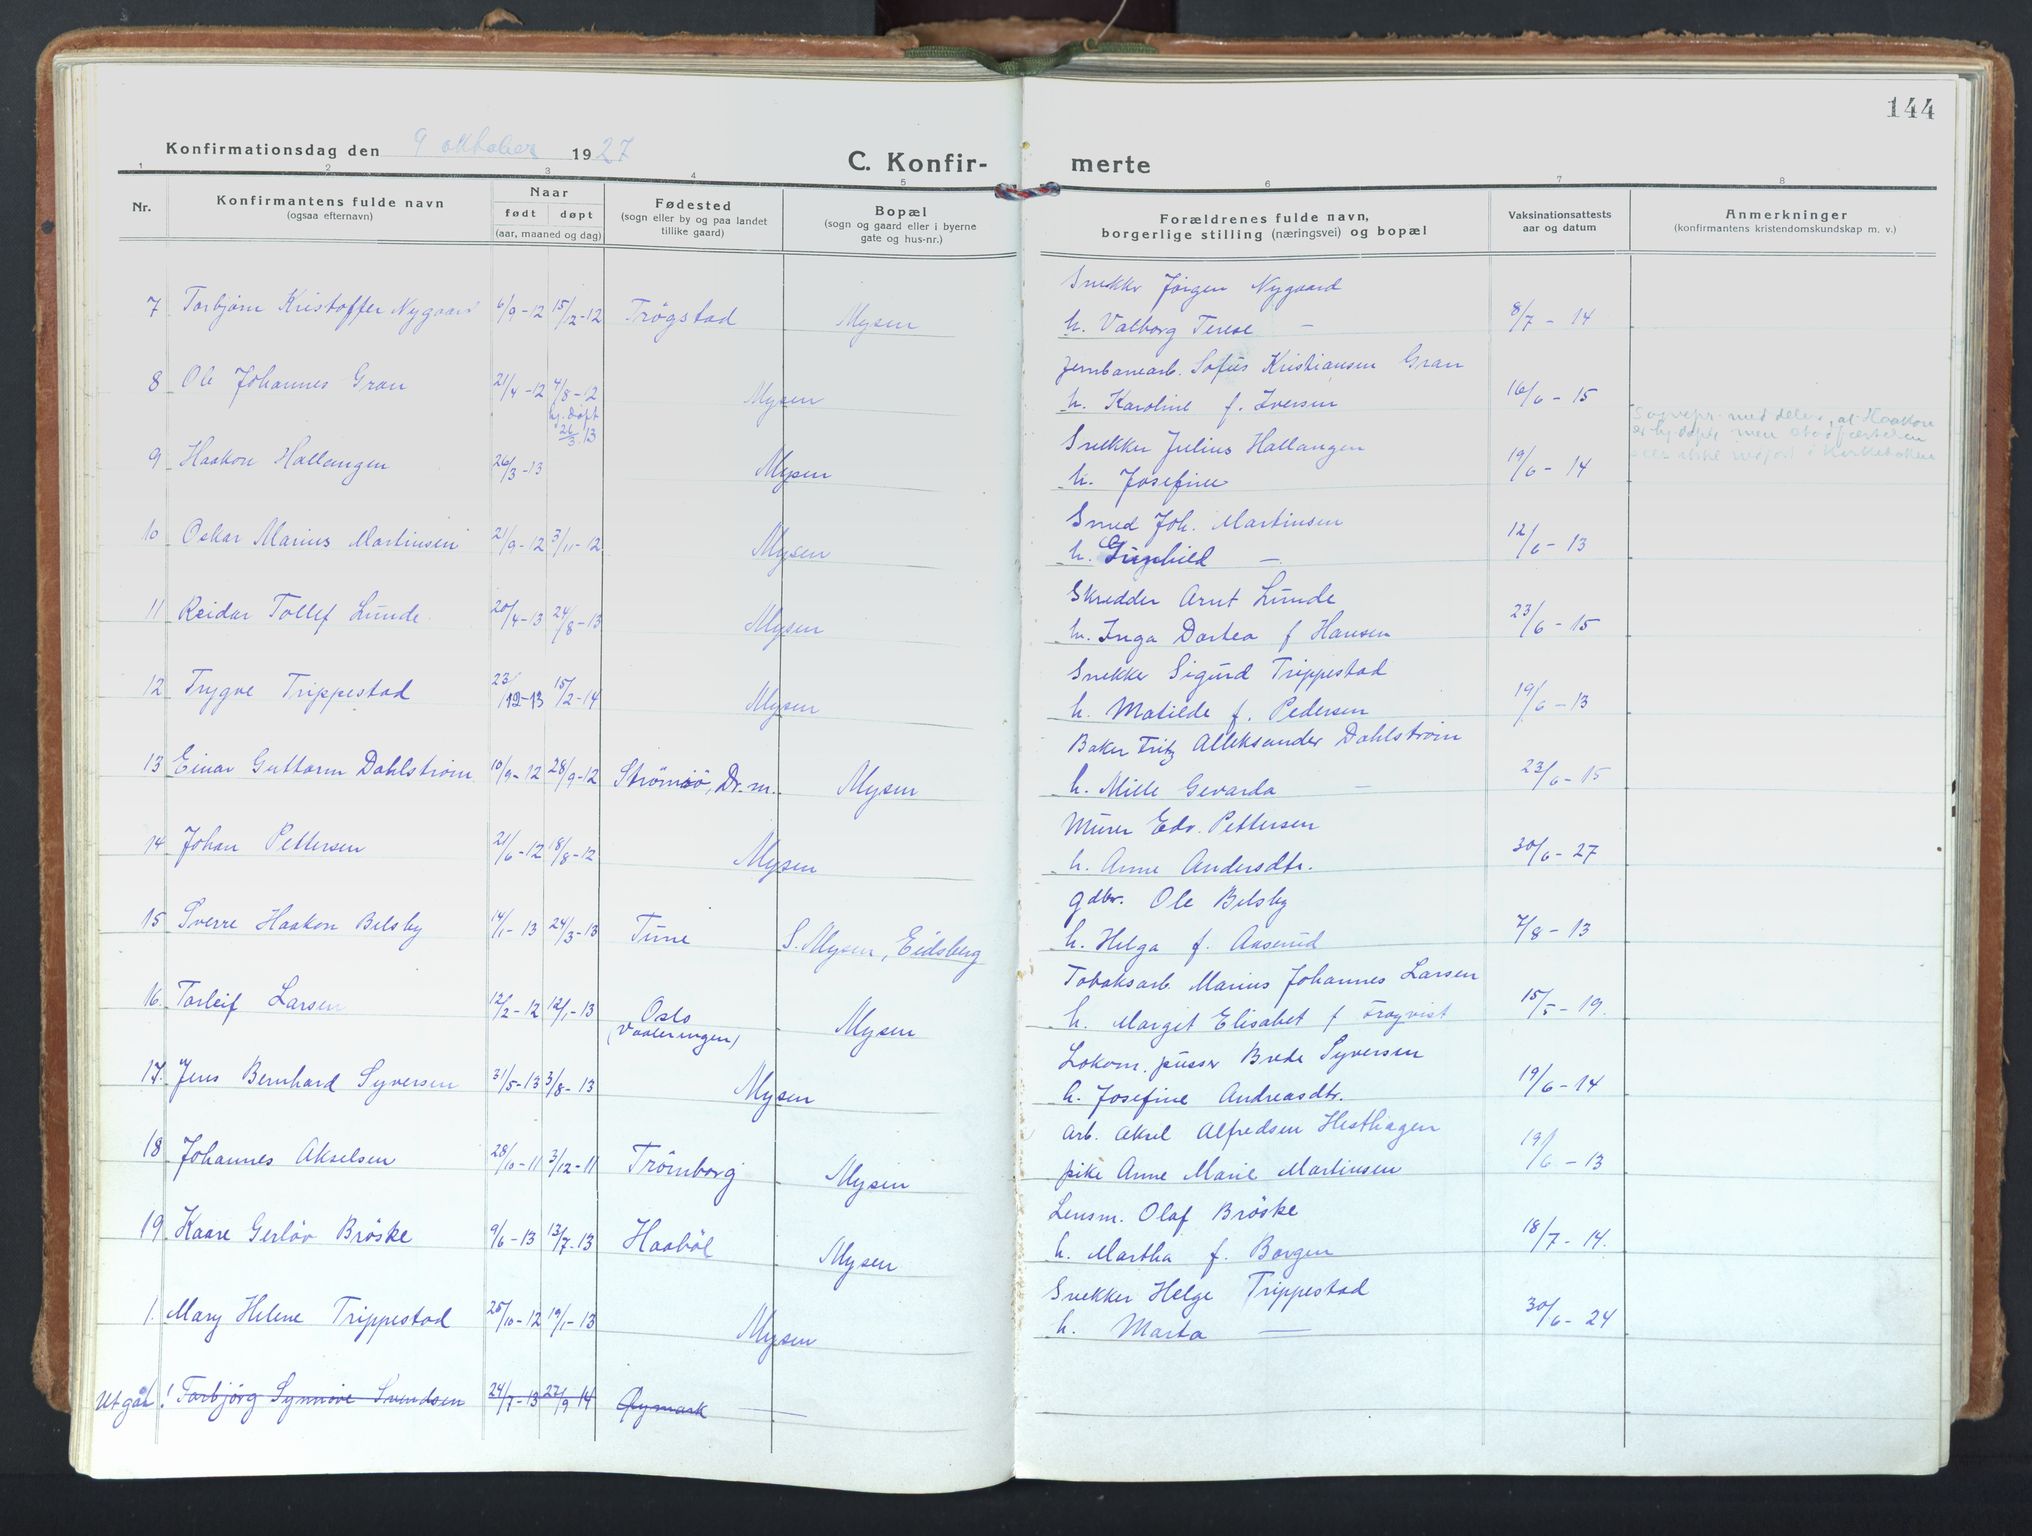 144
Konfirmationsdag den 9 oktober 1927
C. Konfir- merte
1 2 3 4 5 6 7 8
Nr.
Konfirmantens fulde navn
(ogsaa efternavn)
Naar
født døpt
(aar, maaned og dag)
Fødested
(sogn eller by og paa landet
tillike gaard)
Bopæl
(sogn og gaard eller i byerne
gate og hus-nr.)
Forældrenes fulde navn,
borgerlige stilling (næringsvei) og bopæl
Vaksinationsattests
aar og datum
Anmerkninger
(konfirmantens kristendomskundskap m. v.)
Snekker Jörgen Nygaard
7 Torbjörn Kristoffer Nygaard 6/9-12 15/12-12 Trögstad Mysen h. Valborg Terese — 8/7 - 14
Jernbanearb. Sofus Kristiansen Gran
8 Ole Johannes Gran 21/4-12 4/8-12 Mysen h. Karoline f. Iversen 16/6 - 15
hj. döpt
26/3 13
Snekker Julius Hallangen
9 Haakon Hallangen 26/3-13 Mysen h. Josefine 19/6 - 14
Sognepr. meddeler, at Haakon
er hj. döpt men
er ikke indfört i Kirkeboken
Smed Joh. Martinsen
10 Oskar Marius Martinsen 21/9-12 3/11-12 Mysen h. Gunhild — 12/6 - 13
Skredder Arnt Lunde
11 Reidar Tollef Lunde 20/4-13 24/8-13 Mysen h. Inga Dortea f Hansen 23/6 - 15
Snekker Sigurd Trippestad
12 Trygve Trippestad 23/12-13 15/2-14 Mysen h. Matilde f. Pedersen 19/6 - 13
Baker Fritz Alleksander Dahlström
13 Einar Guttorm Dahlström 10/9-12 28/9-12 Strömsö, Dr.m. Mysen h. Mille Gevarda — 23/6 - 15
Murer Edv. Pettersen
14 Johan Pettersen 21/6-12 18/8-12 Mysen h. Anne Andersdtr. 30/6 - 27
gdbr. Ole Bilsby
15 Sverre Haakon Bilsby 14/1-13 24/3-13 Tune S. Mysen, Eidsberg h. Helga f. Aaserud 7/8 - 13
Tobaksarb. Marius Johannes Larsen
16. Torleif Larsen 12/2-12 12/1-13 Oslo Mysen h. Margit Elisabet f Frogvist 15/5 - 19.
(Vaaleringen)
Lokom. pusser Brede Syversen
17. Jens Bernhard Syversen 31/5-13 3/8-13 Mysen h. Josefine Andreasdtr. 19/6 - 14
arb. Aksel Alfredsen Hesthagen
18 Johannes Akselsen 28/10-11 3/12-11 Trömborg Mysen pike Anne Marie Martinsen 19/6 - 13
Lensm. Olaf Bröske
19 Kaare Gerlöv Bröske 9/6-13 13/7-13 Haaböl Mysen h. Martha f. Borgen 18/7 - 14.
Snekker Helge Trippestad
1. Mary Helene Trippestad 25/10-12 19/1-13 Mysen h. Marta — 30/6 - 24
Utgåt ! Torbjörg Synnöve Svendsen 24/7-13 27/9 14 Öymark —